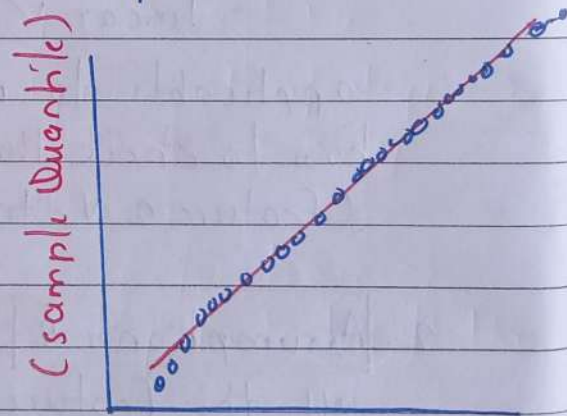 (sample Quantile)